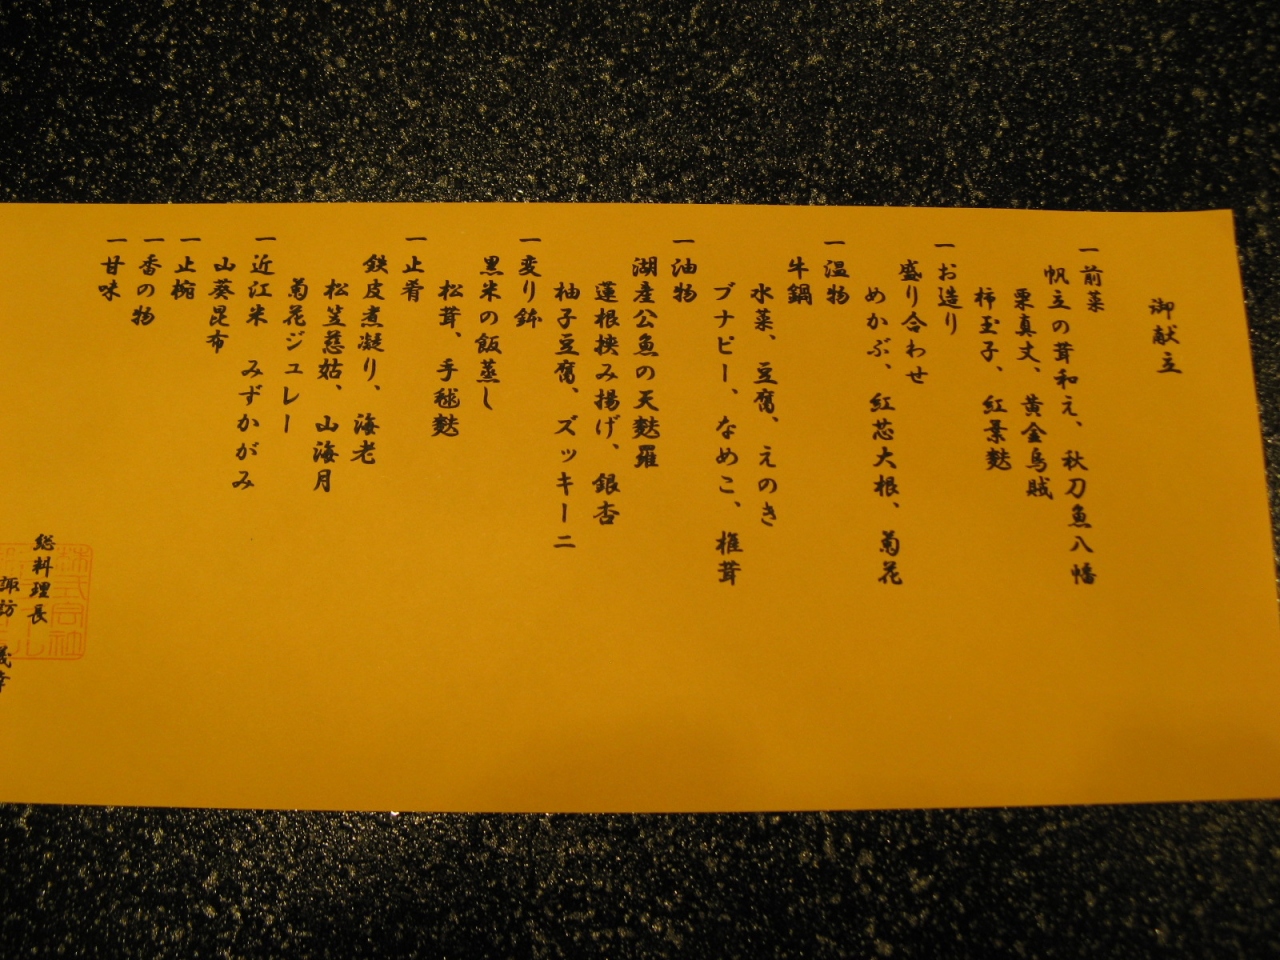 御献立
一前菜
帆立の茸和え、秋刀魚八幡
栗真丈、黄金烏賊
柿玉子、紅葉麩
一お造り
盛り合わせ
めかぶ、紅芯大根、菊花
一温物
牛鍋
水菜、豆腐、えのき
ブナピー、なめこ、椎茸
一油物
湖産公魚の天麩羅
蓮根挟み揚げ、銀杏
柚子豆腐、ズッキーニ
一変り鉢
黒米の飯蒸し
松茸、手毬麩
一止肴
鉄皮煮凝り、海老
松笠慈姑、山海月
菊花ジュレー
一近江米 みずかがみ
山葵昆布
一止椀
一香の物
一甘味
総料理長
諏訪 義幸
株式会社